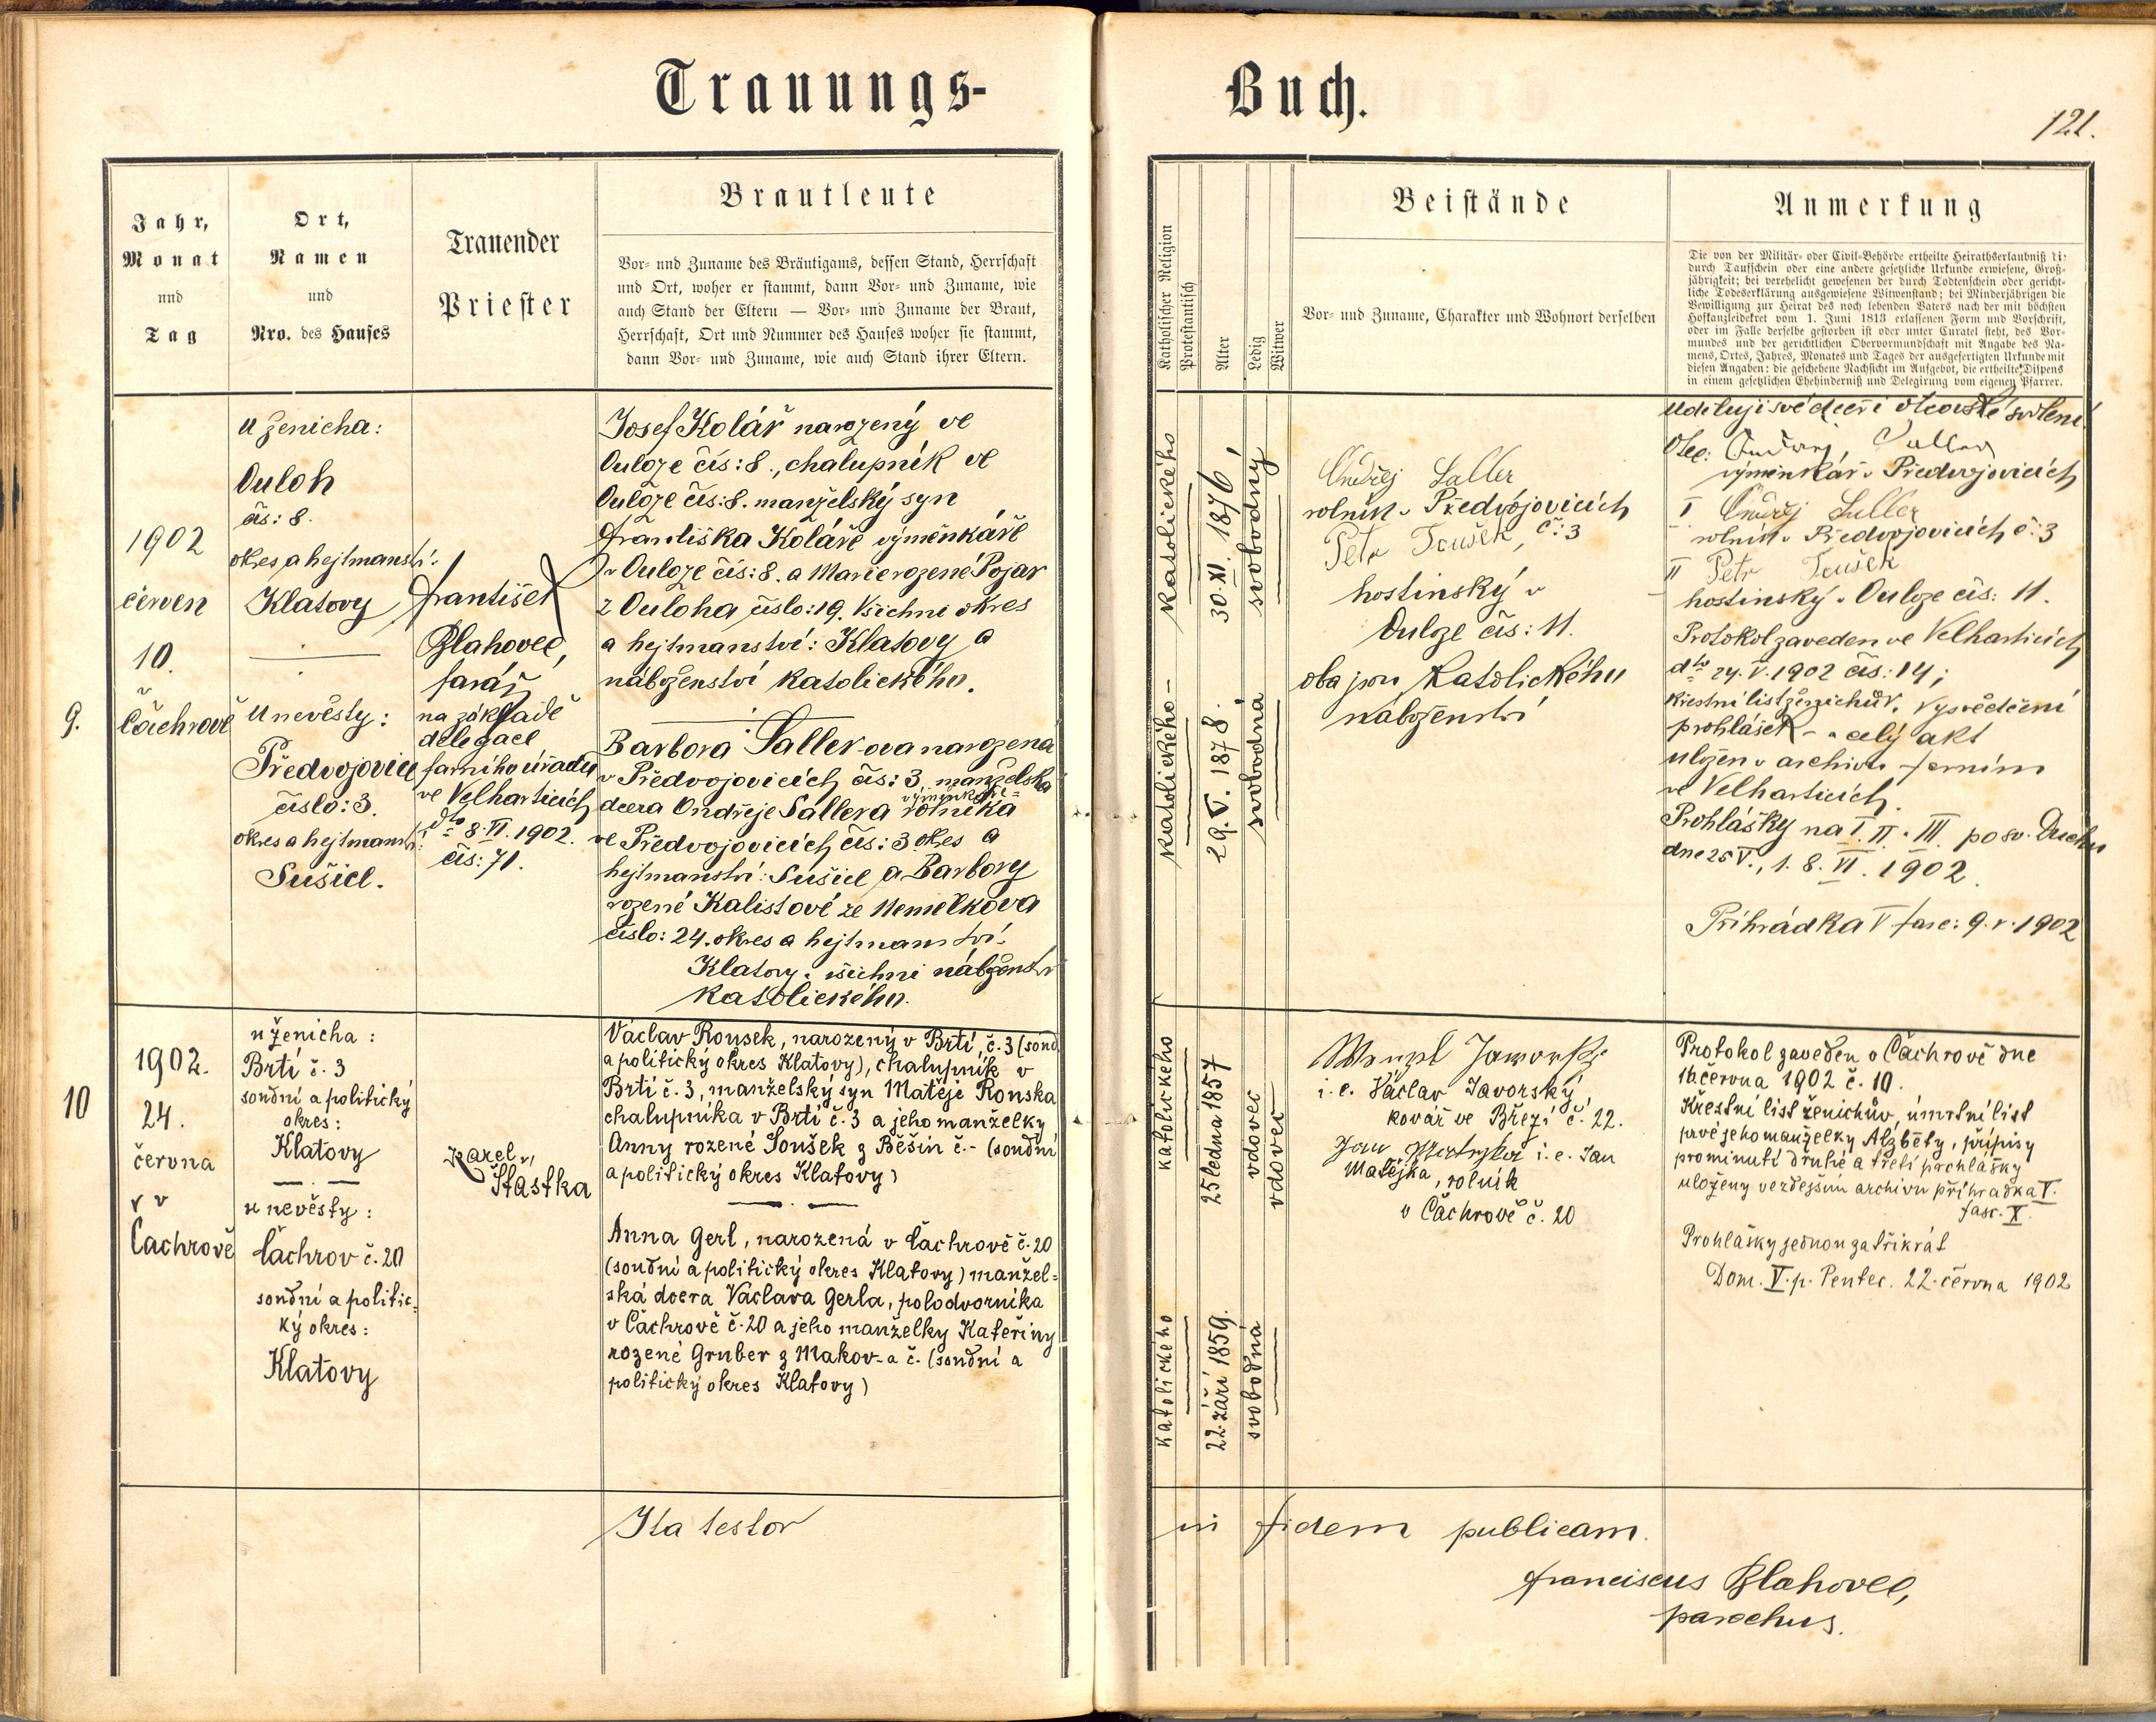 Trauungs-
Buch.
121.
Jahr,
Monat
und
Tag
Ort,
Namen
und
Nro. des Hauses
Trauender
Priester
Brautleute
Vor- und Zuname des Bräutigams, dessen Stand, Herrschaft
und Ort, woher er stammt, dann Vor- und Zuname, wie
auch Stand der Eltern — Vor- und Zuname der Braut,
Herrschaft, Ort und Nummer des Hauses woher sie stammt,
dann Vor- und Zuname, wie auch Stand ihrer Eltern.
Katholischer Religion
Protestantisch
Alter
Ledig
Witwer
Beistände
Vor- und Zuname, Charakter und Wohnort derselben
Anmerkung
Die von der Militär- oder Civil-Behörde ertheilte Heirathserlaubniß
durch Taufschein oder eine andere gesetzliche Urkunde erwiesene, Groß-
jährigkeit; bei verehelicht gewesenen der durch Todtenschein oder gericht-
liche Todeserklärung ausgewiesene Witwenstand; bei Minderjährigen die
Bewilligung zur Heirat des noch lebenden Vaters nach der mit höchsten
Hofkanzleidekret vom 1. Juni 1813 erlassenen Form und Vorschrift,
oder im Falle derselbe gestorben ist oder unter Curatel steht, des Vor-
mundes und der gerichtlichen Obervormundschaft mit Angabe des Na-
mens, Ortes, Jahres, Monates und Tages der ausgefertigten Urkunde mit
diesen Angaben: die geschehene Nachsicht im Aufgebot, die ertheilte Dispens
in einem gesetzlichen Ehehinderniß und Delegirung vom eigenen Pfarrer.
9.
1902
červen
10.
v
Čáchrově
u ženicha:
Ouloh
čís: 8.
okres a hejtmanství:
Klatovy
U nevěsty:
Předvojovice
číslo: 3.
okres a hejtmanství:
Sušice.
František
Blahovec,
farář
na základě
delegace
farního úřadu
ve Velharticích
dto 8. VI. 1902.
čís: 71.
Josef Kolář narozený ve
Ouloze čís: 8., chalupník ve
Ouloze čís: 8. manželský syn
Františka Koláře výměnkáře
v Ouloze čís: 8. a Marie rozené Pojar
z Ouloha číslo: 19. Všichni okres
a hejtmanství: Klatovy a
náboženství katolického.
Barbora Saller-ova narozena
v Předvojovicích čís: 3, manželská
výměnkáře
dcera Ondřeje Sallera rolníka
ve Předvojovicích čís: 3 okres a
hejtmanství: Sušice a Barbory
rozené Kalistové ze Nemelkova
číslo: 24. okres a hejtmanství:
Klatovy. všichni nábženství
katolického.
katolického
30. XI. 1876
svobodný
katolického
29. V. 1878.
svobodná
Ondřej Saller
rolník v Předvojovicích
č: 3
Petr Toušek,
hostinský v
Ouloze čís: 11.
oba jsou katolického
náboženství
Uděluji své dceři otcovské svolení.
Otec: Ondřej Saller
výměnkář v Předvojovicích
I Ondřej Saller
rolník v Předvojovicích č: 3
II Petr Toušek
hostinský v Ouloze čís: 11.
Protokol zaveden ve Velharticích
dto 24. V. 1902 čís: 14;
křestní list ženichův. Vysvědčení
prohlášek – a celý akt
uložen v archivu farním
ve Velharticích.
Prohlášky na I. II. III. po sv. Duchu
dne 25 V., 1. 8. VI. 1902.
Přihrádka V fasc: 9. r. 1902
10
1902.
24.
června
v
Čachrově
u ženicha:
Brtí č. 3
soudní a politický
okres:
Klatovy
u nevěsty:
Čachrov č. 20
soudní a politic-
ký okres:
Klatovy
Karel
Šťastka
Václav Rousek, narozený v Brtí, č. 3 (soud
a politický okres Klatovy), chalupník v
Brtí č. 3, manželský syn Matěje Rouska
chalupníka v Brtí č. 3 a jeho manželky
Anny rozené Soušek z Běšin č. - (soudní
a politický okres Klatovy)
Anna Gerl, narozená v Čachrově č. 20
(soudní a politický okres Klatovy) manžel-
ská dcera Václava Gerla, polodvorníka
v Čachrově č. 20 a jeho manželky Kateřiny
rozené Gruber z Makov-a č. (soudní a
politický okres Klatovy)
katolického
25 ledna 1857
vdovec
vdovec
katolického
22. září 1859.
svobodná
Wenzl Jaworsky
i. e. Václav Javorský,
kovář ve Březí č. 22.
Jan Matejka i. e. Jan
Matějka, rolník
v Čachrově č. 20
Protokol zaveden v Čachrově dne
16. června 1902 č. 10.
Křestní list ženichův, úmrtní list
prvé jeho manželky Alžběty, přípisy
prominutí druhé a třetí prohlášky
uloženy ve zdejším archivu přihrádka V.
fasc. X.
Prohlášky jednou za třikrát
Dom. V. p. Pentec. 22. června 1902
Ita testor
in fidem publicam.
Franciscus Blahovec,
parochus.